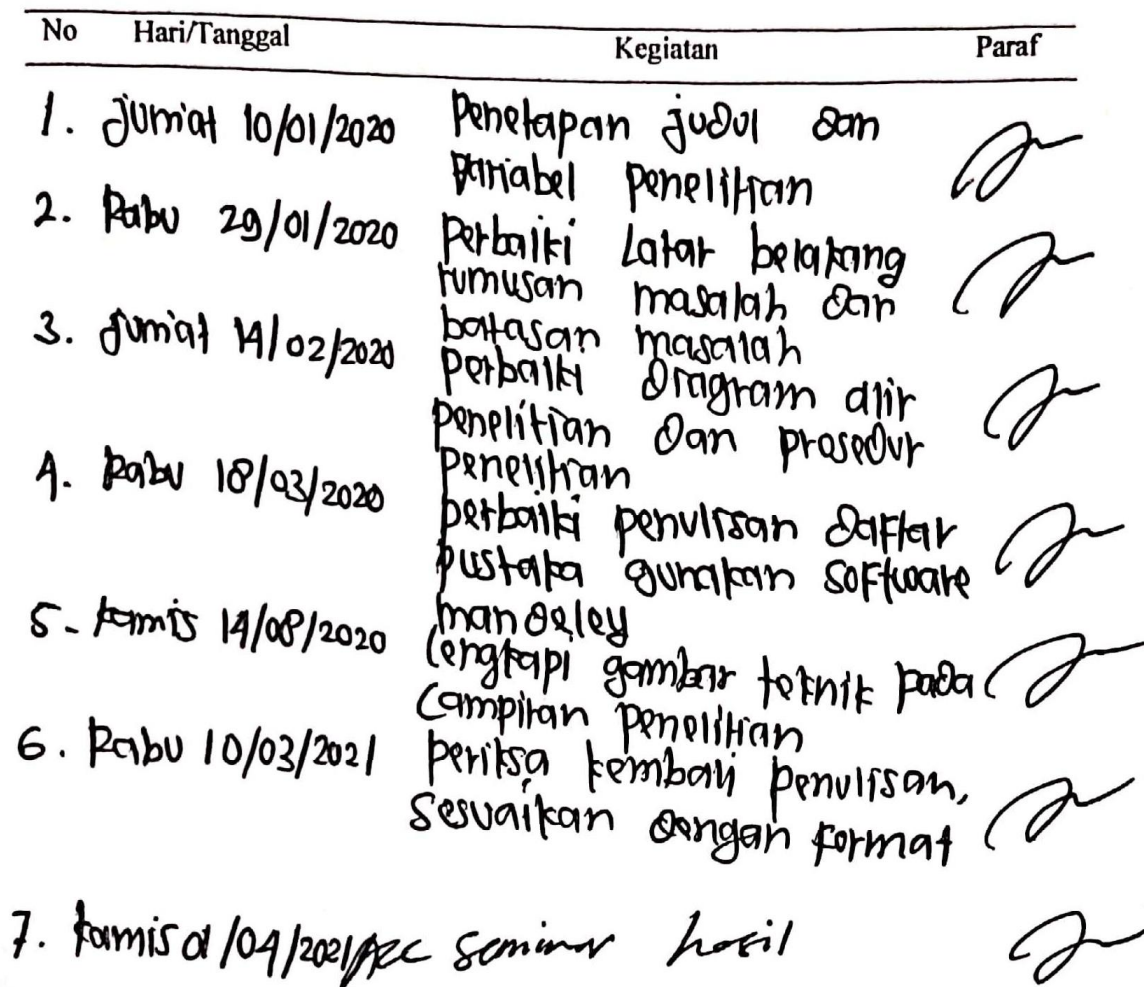 No Hari/Tanggal Kegiatan Paraf
1. Jum'at 10/01/2020 Penetapan judul dan
variabel penelitian
2. Rabu 29/01/2020 Perbaiki Latar belakang
rumusan masalah dan
3. Jum'at 14/02/2020 batasan masalah
Perbaiki Diagram alir
penelitian dan prosedur
4. Rabu 18/03/2020 penelitian
perbaiki penulisan Daftar
pustaka gunakan software
5. Kamis 14/08/2020 mandeley
lengkapi gambar teknik pada
Lampiran penelitian
6. Rabu 10/03/2021 periksa kembali penulisan,
Sesuaikan dengan format
7. Kamis 01/04/2021 Acc seminar hasil